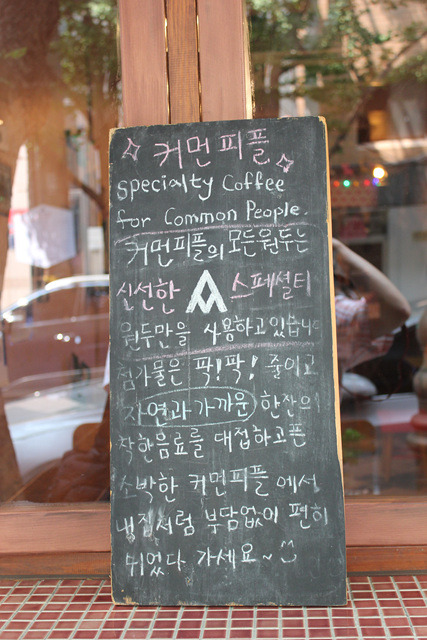 커먼피플
Specialty Coffee
for Common People.
커먼피플의 모든원두는
신선한 스페셜티
원두만을 사용하고있습니다
첨가물은 팍!팍! 줄이고
자연과가까운 한잔의
착한음료를 대접하고픈
소박한 커먼피플 에서
내집처럼 부담없이 편히
쉬었다 가세요~